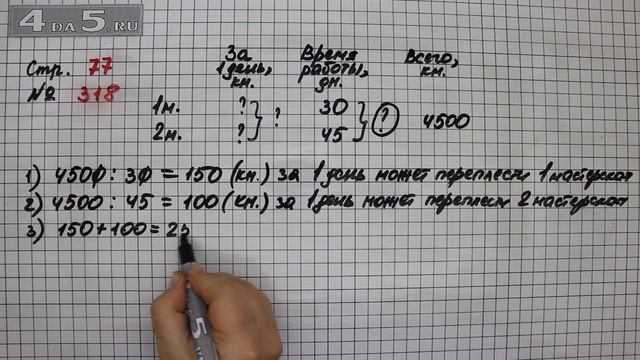 4DA5.RU
Стр. 77
№ 318
За 1 день, кн.
Время работы, дн.
Всего, кн.
1м. ? 30
? ? 4500
2м. ? 45
1) 4500 : 30 = 150 (кн.) за 1 день может переплести 1 мастерская
2) 4500 : 45 = 100 (кн.) за 1 день может переплести 2 мастерская
3) 150 + 100 = 25
5